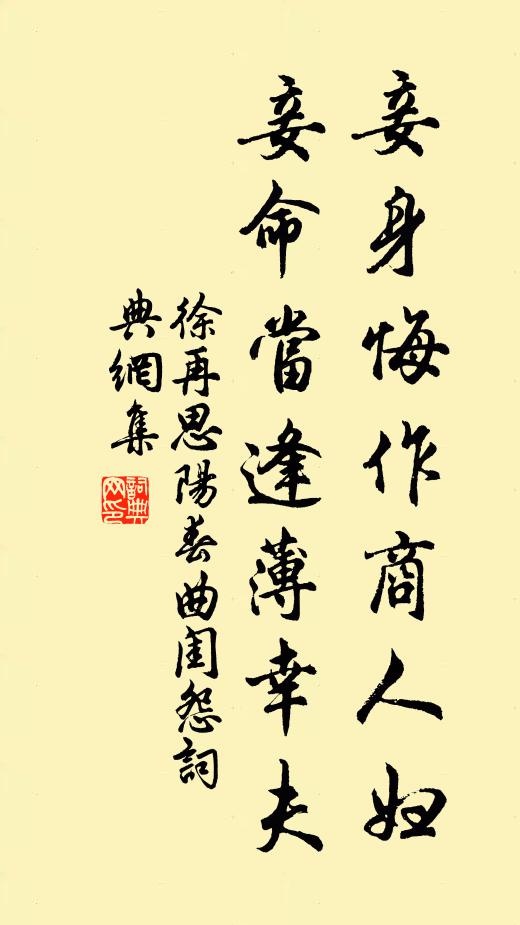 妾身悔作商人妇
妾命當逢薄幸夫
徐再思陽春曲闺怨詞
典網集
詞典网印